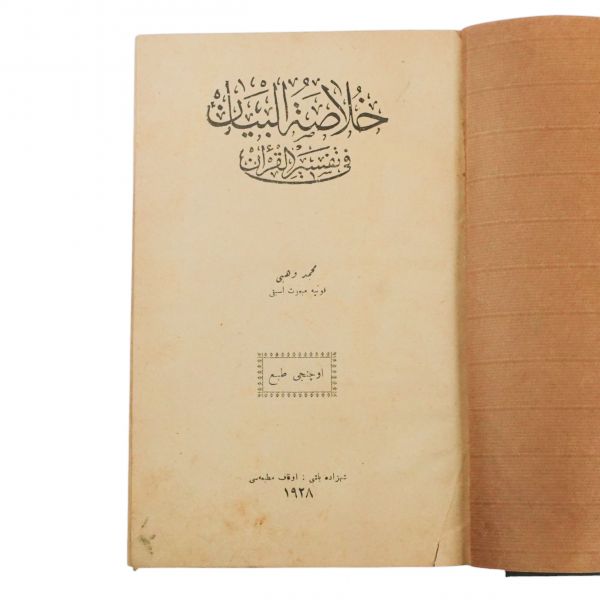 خُلَاصَةُ الْبَيَانِ
فِى تَفْسِيرِ الْقُرْآنِ
محمد وهبى
قونیه مبعوث اسبقى
اوچنجى طبع
شهزاده باشى : اوقاف مطبعه‌سى
١٩٢٨